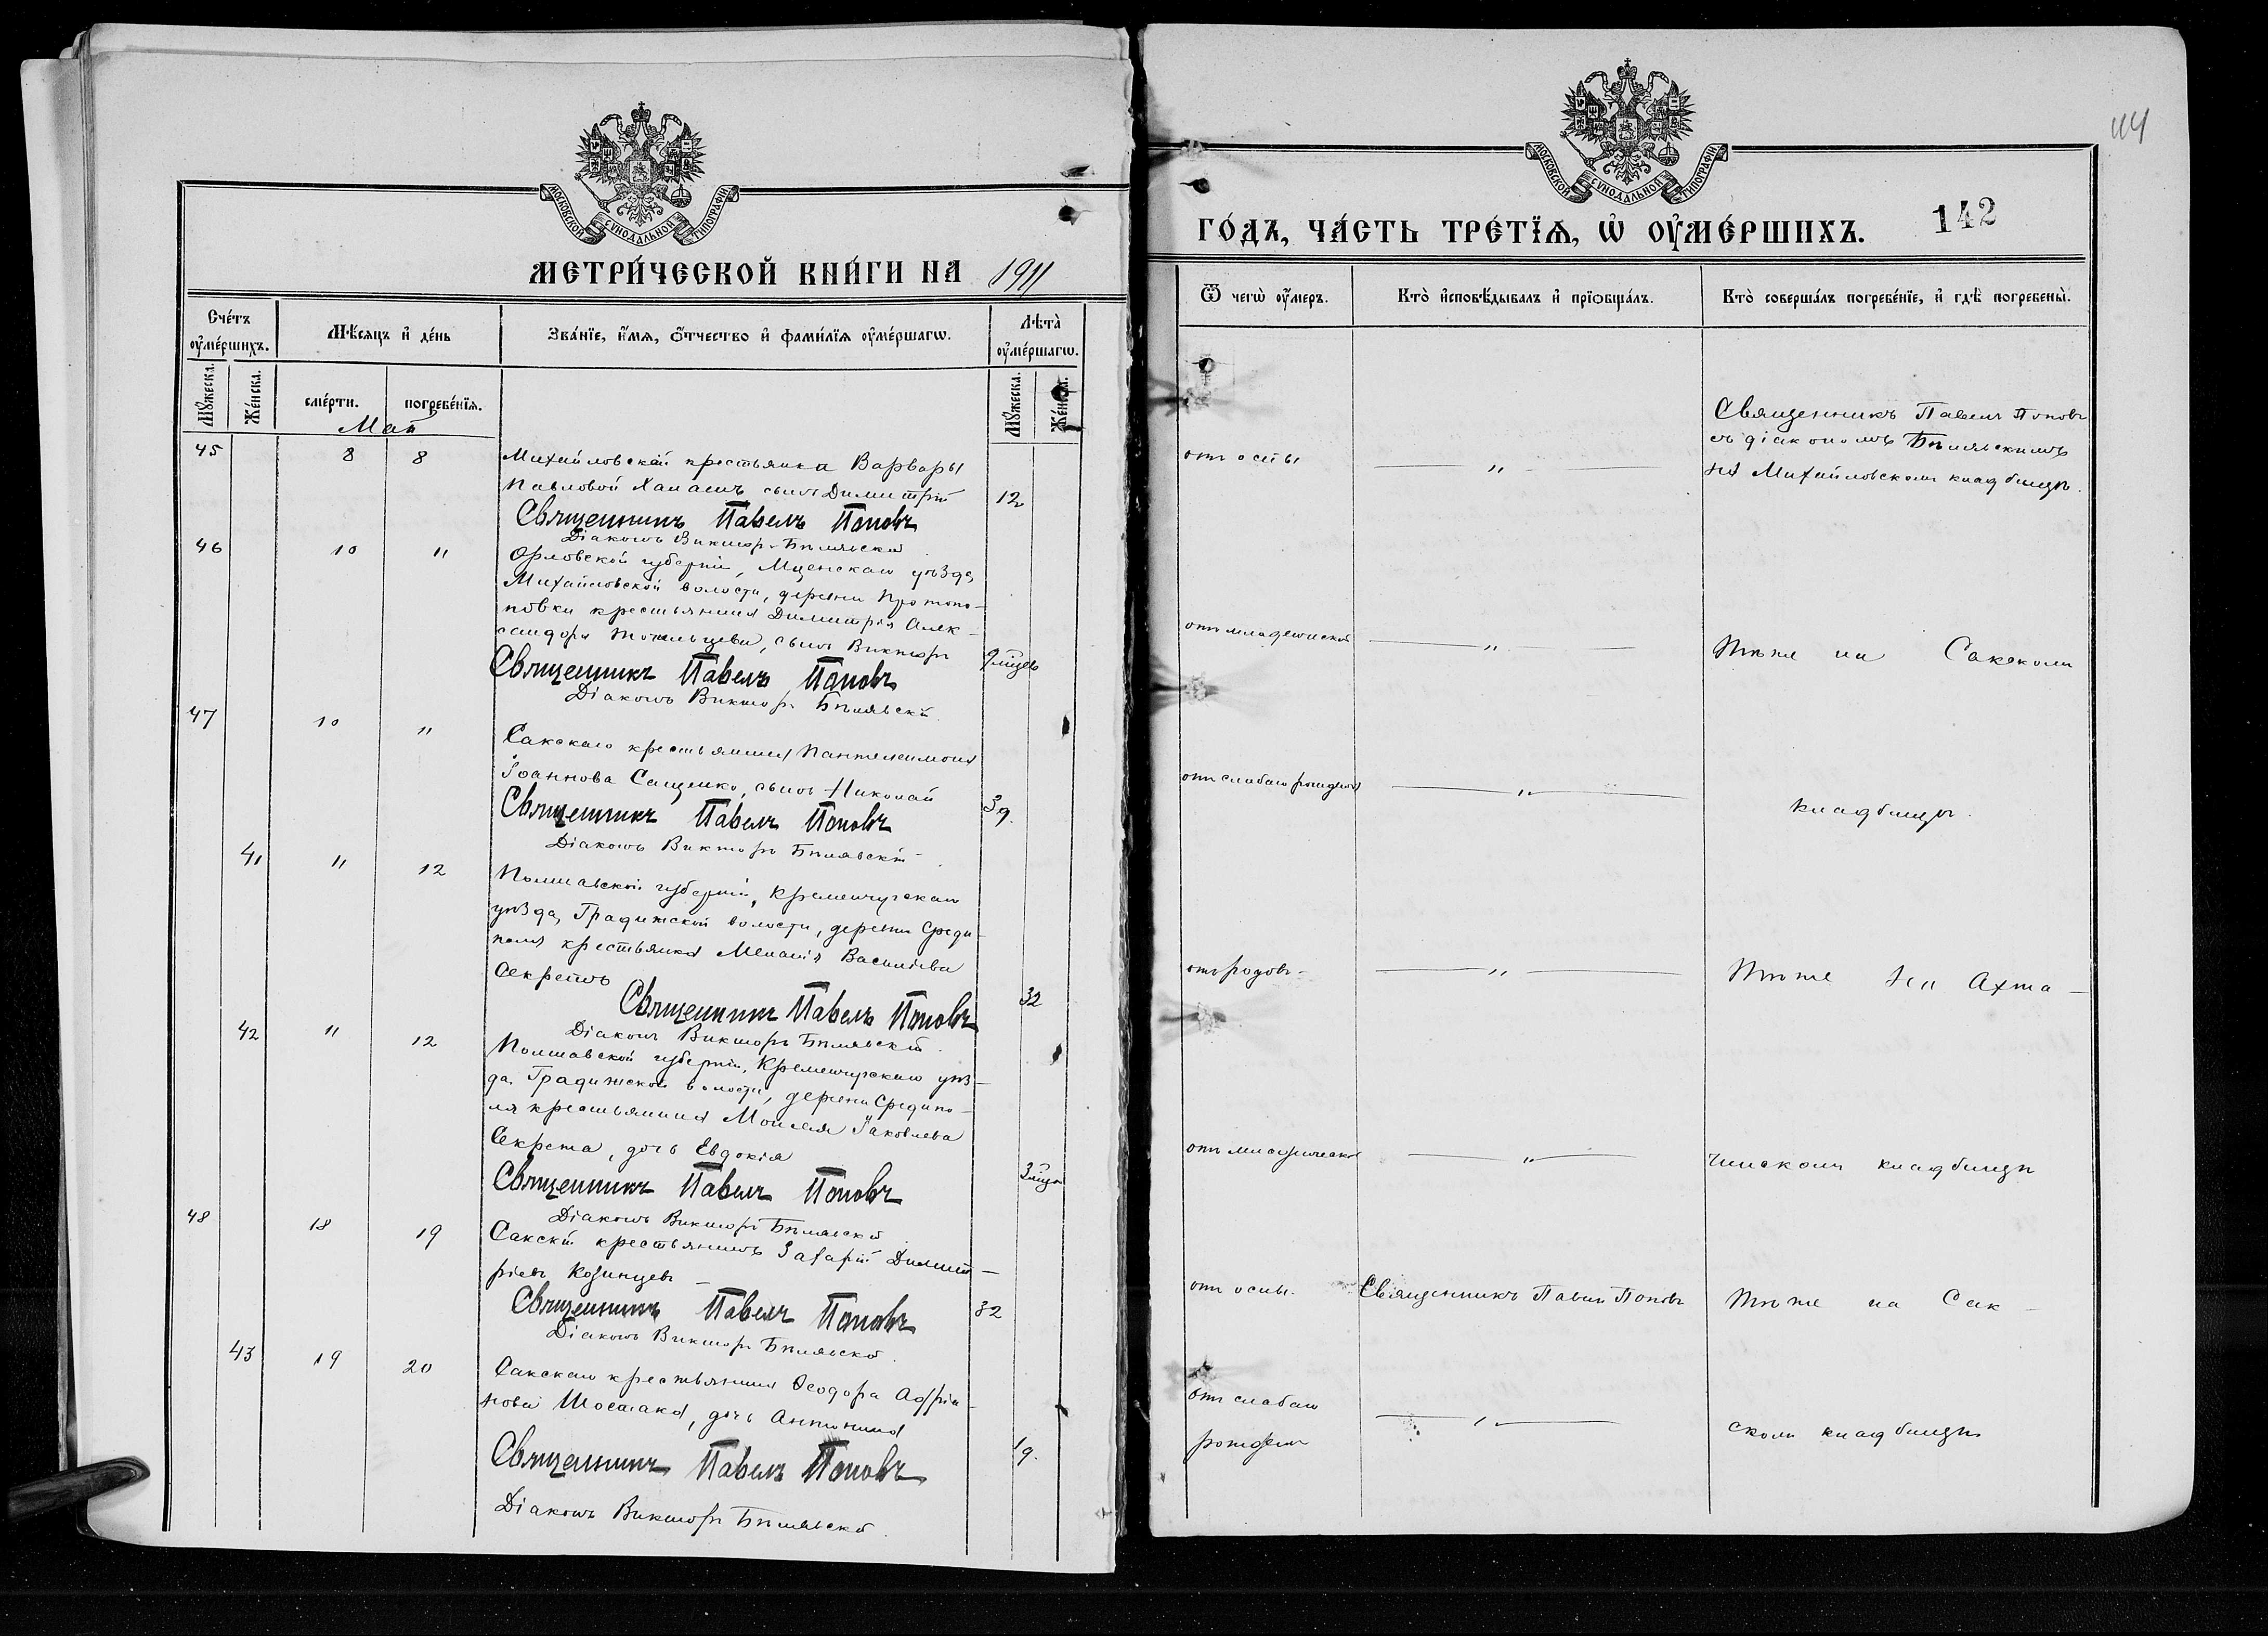 МОСКОВСКОЙ СѴНОДАЛЬНОЙ ТИПОГРАФІИ
МЕТРИ́ЧЕСКОЙ КНИ́ГИ НА 1911
Сче́тъ ᲂу҆ме́ршихъ.
Мѣ́сяцъ и҆ де́нь
Зва́нїе, и҆́мѧ, ѻ҆́тчество и҆ фами́лїѧ ᲂу҆ме́ршагѡ.
Лѣта̀ ᲂу҆ме́ршагѡ.
Мꙋ́жеска.
Же́нска.
сме́рти.
погребе́нїѧ.
Мꙋ́жеска.
Же́нска.
Май
45 8 8 Михайловской крестьянки Варвары
Павловой Ханачъ сынъ Димитрій 12
Священникъ Павелъ Поповъ
Діаконъ Викторъ Бѣлявскій
46 10 11 Орловской губерніи, Мценскаго уѣзда,
Михайловской волости, деревни Протопо-
повки крестьянина Димитрія Алек-
сандова сынъ Викторъ 9 мѣсцев
Священникъ Павелъ Поповъ
Діаконъ Викторъ Бѣлявскій.
47 10 11 Сакскаго крестьянина Пантелеимона
Іоаннова Сащенко, сынъ Николай 3 д.
Священникъ Павелъ Поповъ
Діаконъ Викторъ Бѣлявскій.
41 11 12 Полтавской губерніи, Кременчугскаго
уѣзда, Градижской волости, деревни Среди-
поля крестьянка Меланія Васильева
Секретъ 32
Священникъ Павелъ Поповъ
Діаконъ Викторъ Бѣлявскій.
42 11 12 Полтавской губерніи, Кременчугскаго уѣз-
да, Градижской волости, деревни Средипо-
ля крестьянина Моисея Іаковлева
Секрета, дочь Евдокія 3 мѣс
Священникъ Павелъ Поповъ
Діаконъ Викторъ Бѣлявскій
48 18 19 Сакскій крестьянинъ Захарій Димит-
ріевъ Козинцевъ 32
Священникъ Павелъ Поповъ
Діаконъ Викторъ Бѣлявскій.
43 19 20 Сакскаго крестьянина Ѳеодора Адріа-
нова Шостака, дочь Антонина 1 д.
Священникъ Павелъ Поповъ
Діаконъ Викторъ Бѣлявскій.
114
МОСКОВСКОЙ СѴНОДАЛЬНОЙ ТИПОГРАФІИ
ГО́ДЪ, ЧА́СТЬ ТРЕ́ТЇѦ, Ѡ҆ ОУ҆МЕ́РШИХЪ. 142
Ѿ чегѡ̀ ᲂу҆́меръ.
Кто̀ и҆сповѣ́дывалъ и҆ прїѡбща́лъ.
Кто̀ соверша́лъ погребе́нїе, и҆ гдѣ̀ погребены̀.
отъ оспы " Священникъ Павелъ Поповъ
съ діакономъ Бѣлявскимъ
на Михайловскомъ кладбищѣ.
отъ младенческой " Тѣже на Сакскомъ
отъ слабаго рожденія " кладбищѣ.
отъ родовъ " Тѣже на Ахма-
отъ младенческой " чинскомъ кладбищѣ
отъ оспы. Священникъ Павелъ Поповъ Тѣже на Сак-
отъ слабаго " скомъ кладбищѣ
рожденія